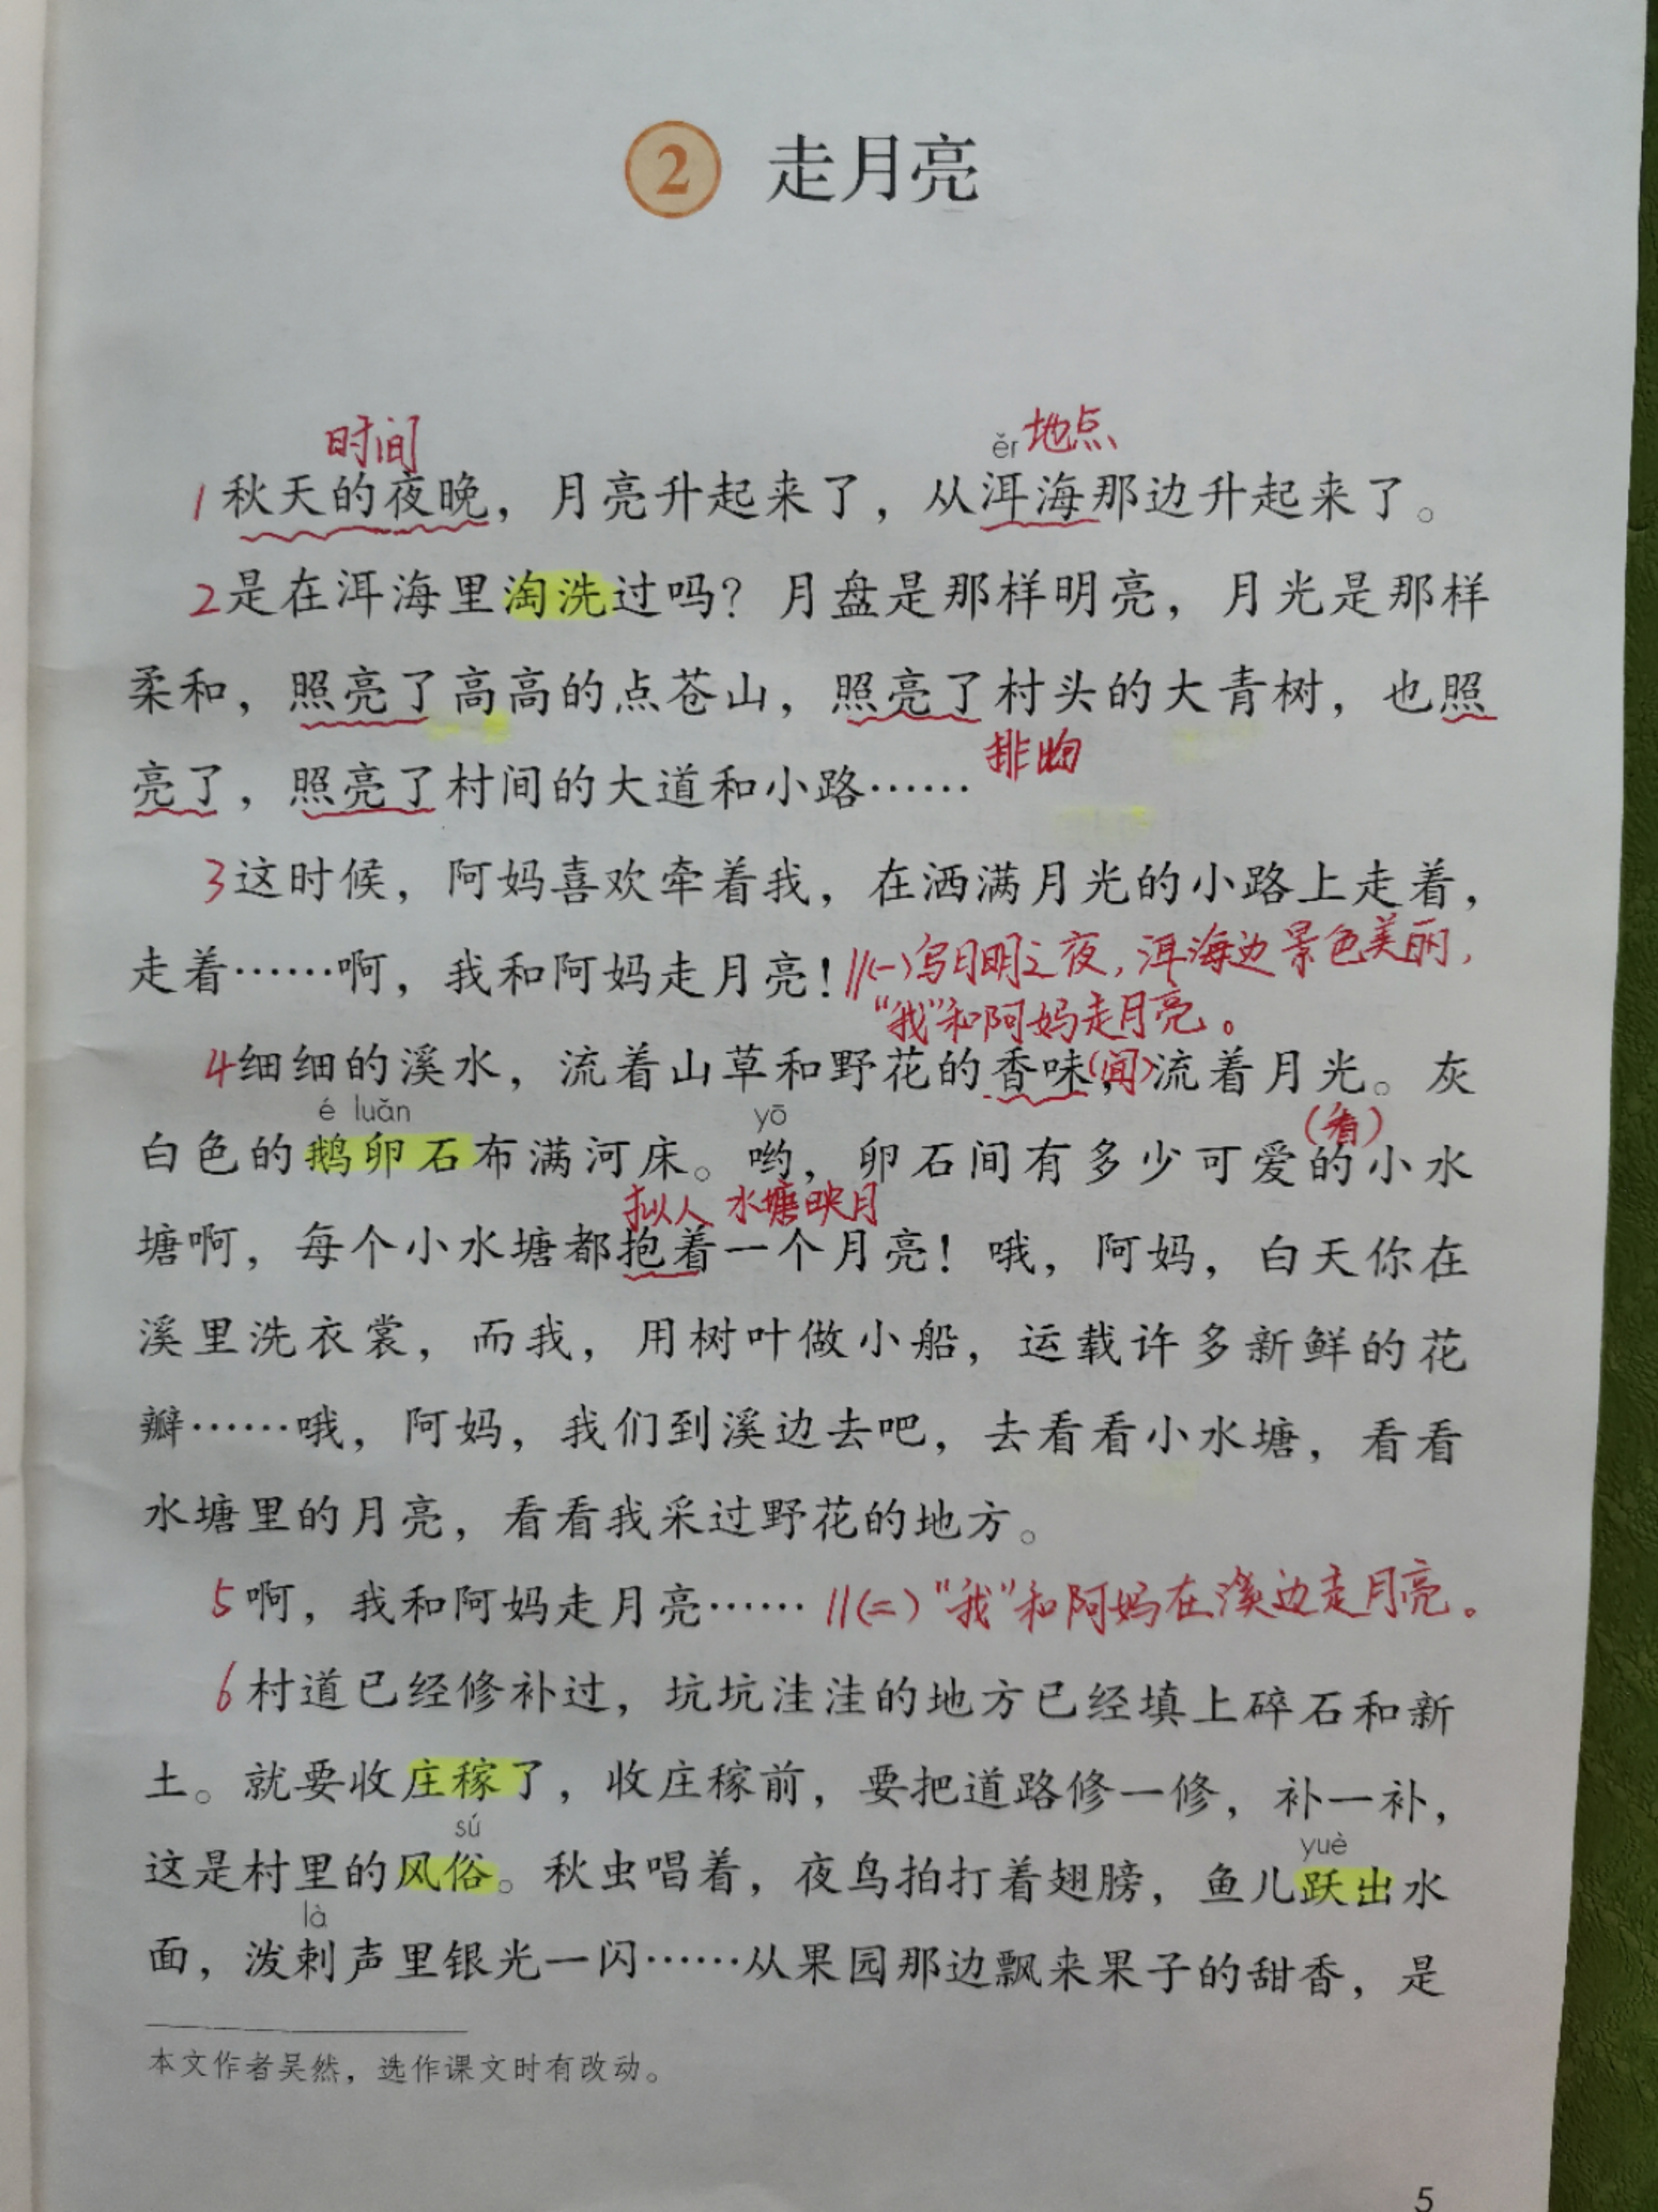 2 走月亮
时间
ěr 地点
1 秋天的夜晚，月亮升起来了，从洱海那边升起来了。
2 是在洱海里淘洗过吗？月盘是那样明亮，月光是那样
柔和，照亮了高高的点苍山，照亮了村头的大青树，也照
排
亮了，照亮了村间的大道和小路……
3 这时候，阿妈喜欢牵着我，在洒满月光的小路上走着，
走着……啊，我和阿妈走月亮！ //(一)写月明之夜，洱海边景色美丽，
“我”和阿妈走月亮。
4 细细的溪水，流着山草和野花的香味，流着月光。灰
é luǎn yō (看)
白色的鹅卵石布满河床。哟，卵石间有多少可爱的小水
拟人 水塘映月
塘啊，每个小水塘都抱着一个月亮！哦，阿妈，白天你在
溪里洗衣裳，而我，用树叶做小船，运载许多新鲜的花
瓣……哦，阿妈，我们到溪边去吧，去看看小水塘，看看
水塘里的月亮，看看我采过野花的地方。
5 啊，我和阿妈走月亮…… //(二)“我”和阿妈在溪边走月亮。
6 村道已经修补过，坑坑洼洼的地方已经填上碎石和新
土。就要收庄稼了，收庄稼前，要把道路修一修，补一补，
sú yuè
这是村里的风俗。秋虫唱着，夜鸟拍打着翅膀，鱼儿跃出水
là
面，泼剌声里银光一闪……从果园那边飘来果子的甜香，是
本文作者吴然，选作课文时有改动。
5